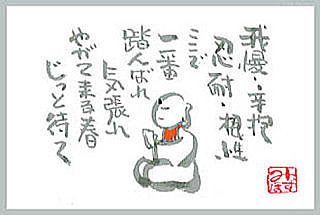 我慢・辛抱
忍耐・根性
ここで
一番
踏んばれ
気張れ
やがて来る春
じっと待て